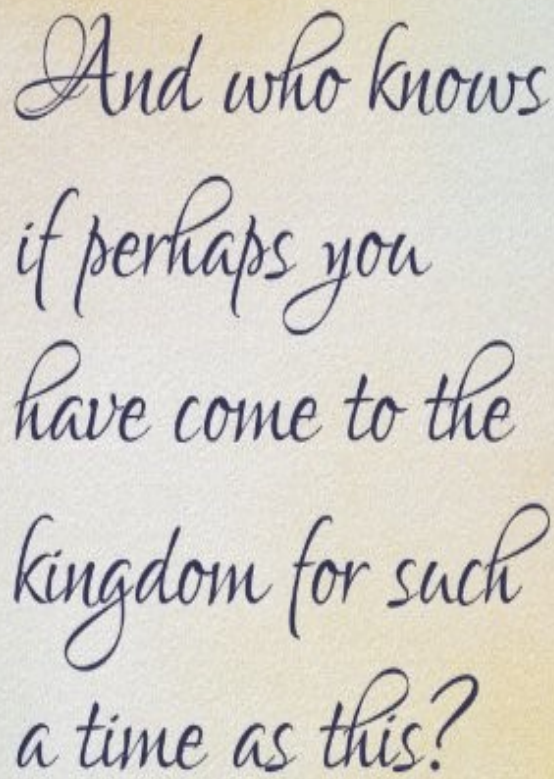 And who knows
if perhaps you
have come to the
kingdom for such
a time as this?